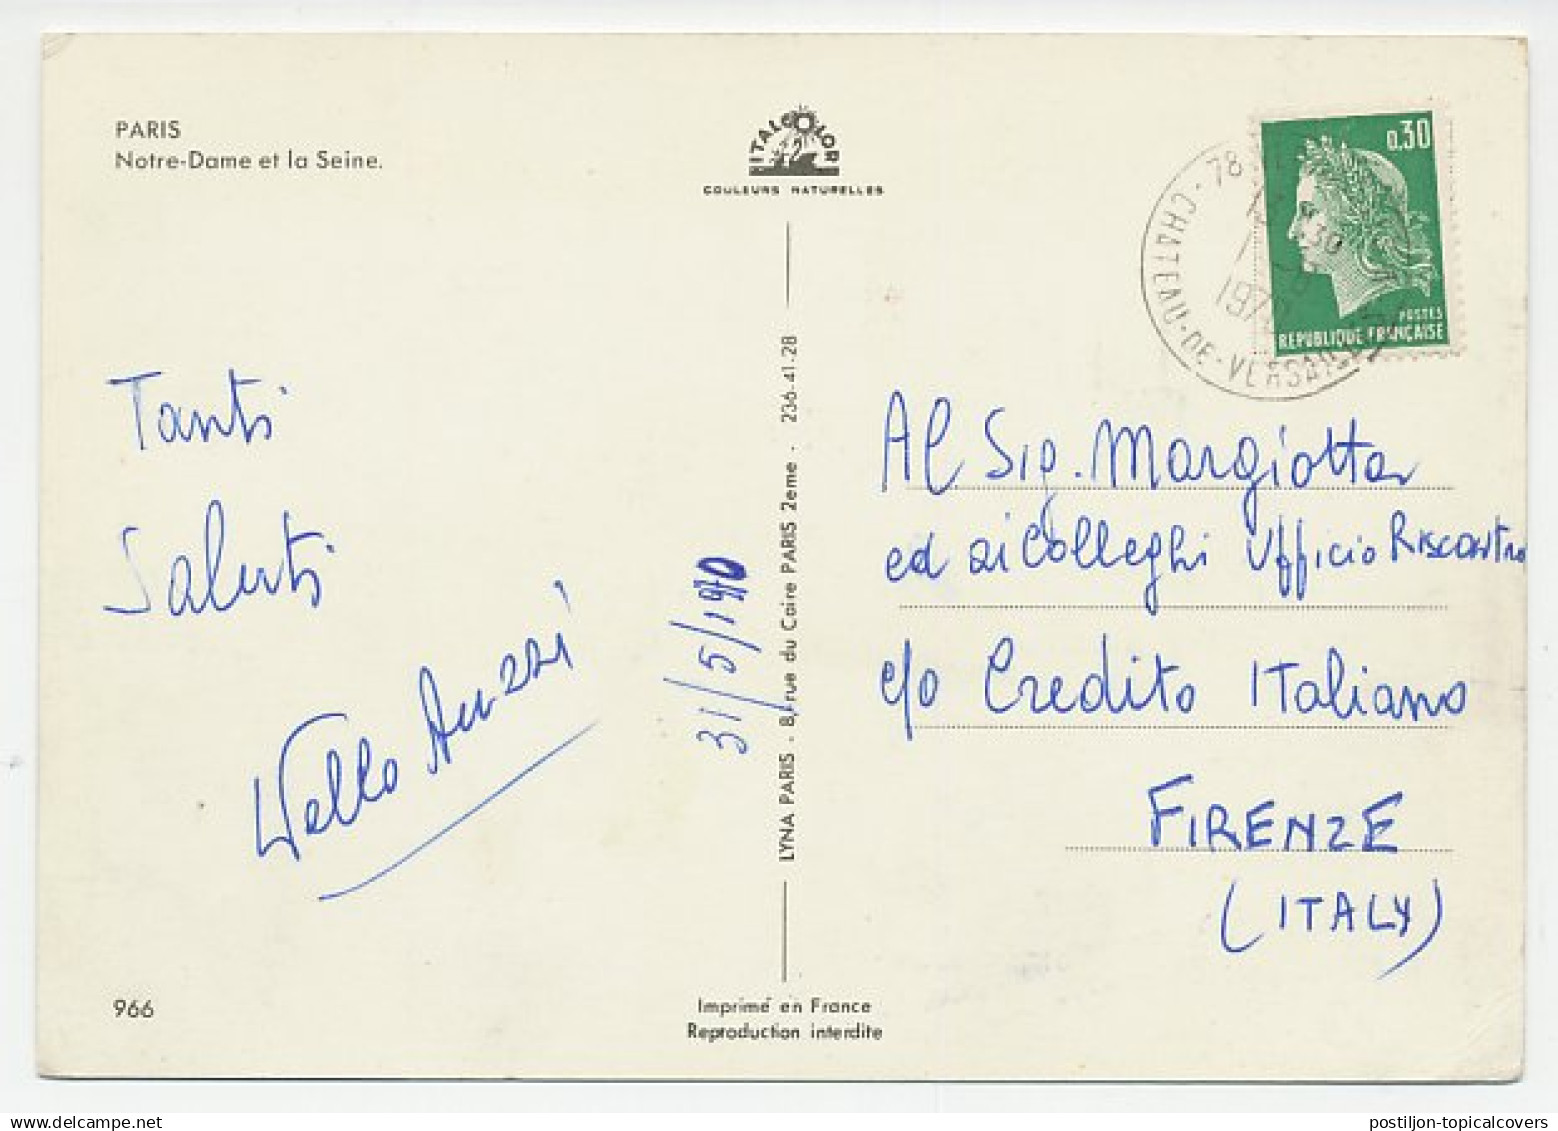 PARIS
Notre-Dame et la Seine.
ITALCOLOR
COULEURS NATURELLES
0,30
POSTES
REPUBLIQUE FRANÇAISE
78
CHATEAU-DE-VERSAILLES
Tanti
Saluti
31/5/1970
LYNA PARIS . 8, rue du Caire PARIS 2eme . 236-41-28
Al Sig. Margiotta
ed ai Colleghi Ufficio Riscontro
c/o Credito Italiano
FIRENZE
(ITALY)
966
Imprimé en France
Reproduction interdite
delcampe.net
postiljon-topicalcovers